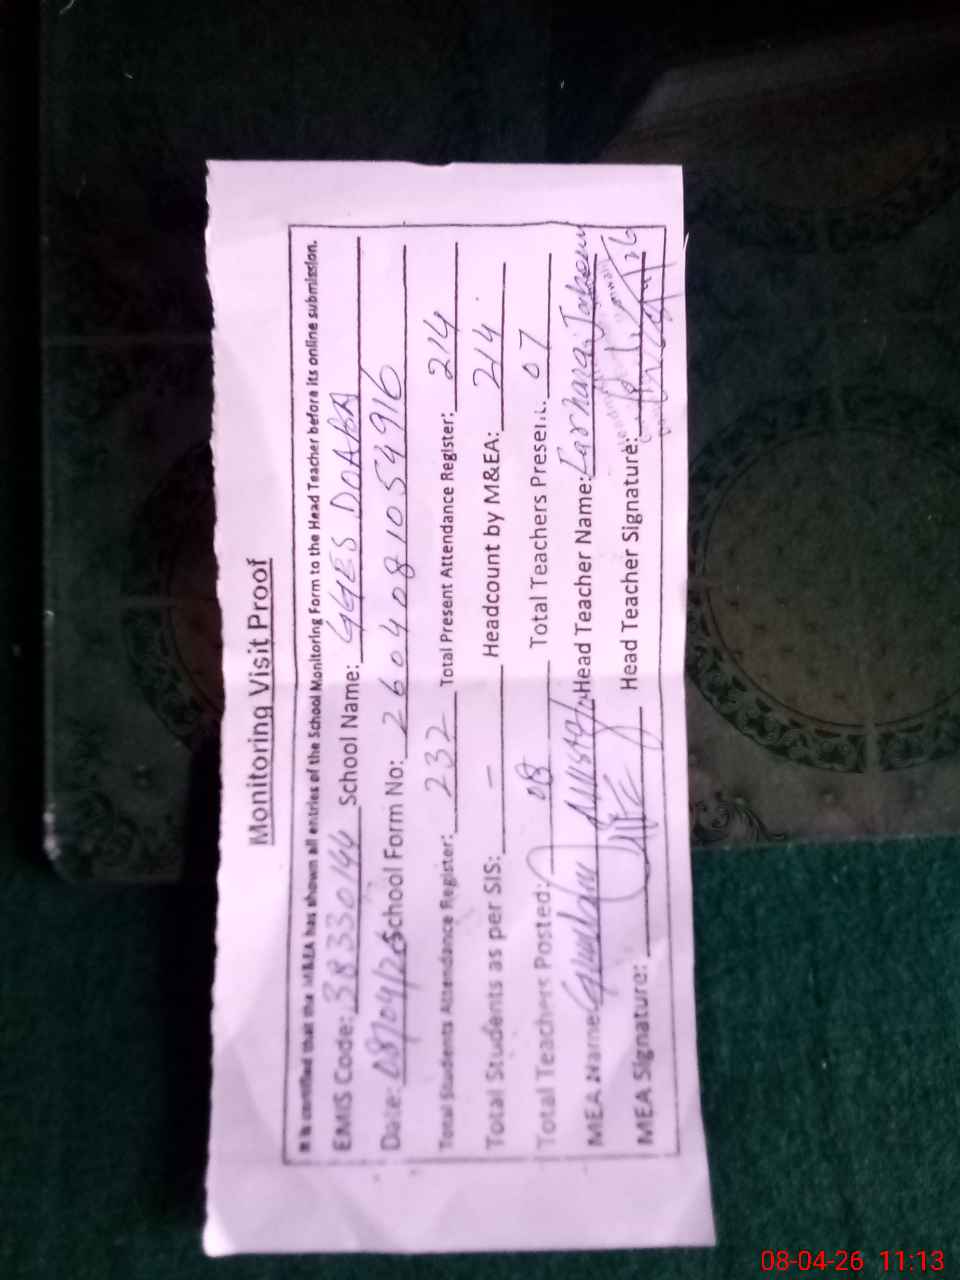 Monitoring Visit Proof
It is certified that the M&EA has shown all entries of the School Monitoring Form to the Head Teacher before its online submission.
EMIS Code: 38330144 School Name: GGES DOABA
Date: 08/04/26 School Form No: 2604081054916
Total Students Attendance Register: 232 Total Present Attendance Register: 214
Total Students as per SIS: - Headcount by M&EA: 214
Total Teachers Posted: 08 Total Teachers Present: 07
MEA Name: Ghulam Mustafa Head Teacher Name: Farhana
MEA Signature: Head Teacher Signature:
08-04-26 11:13